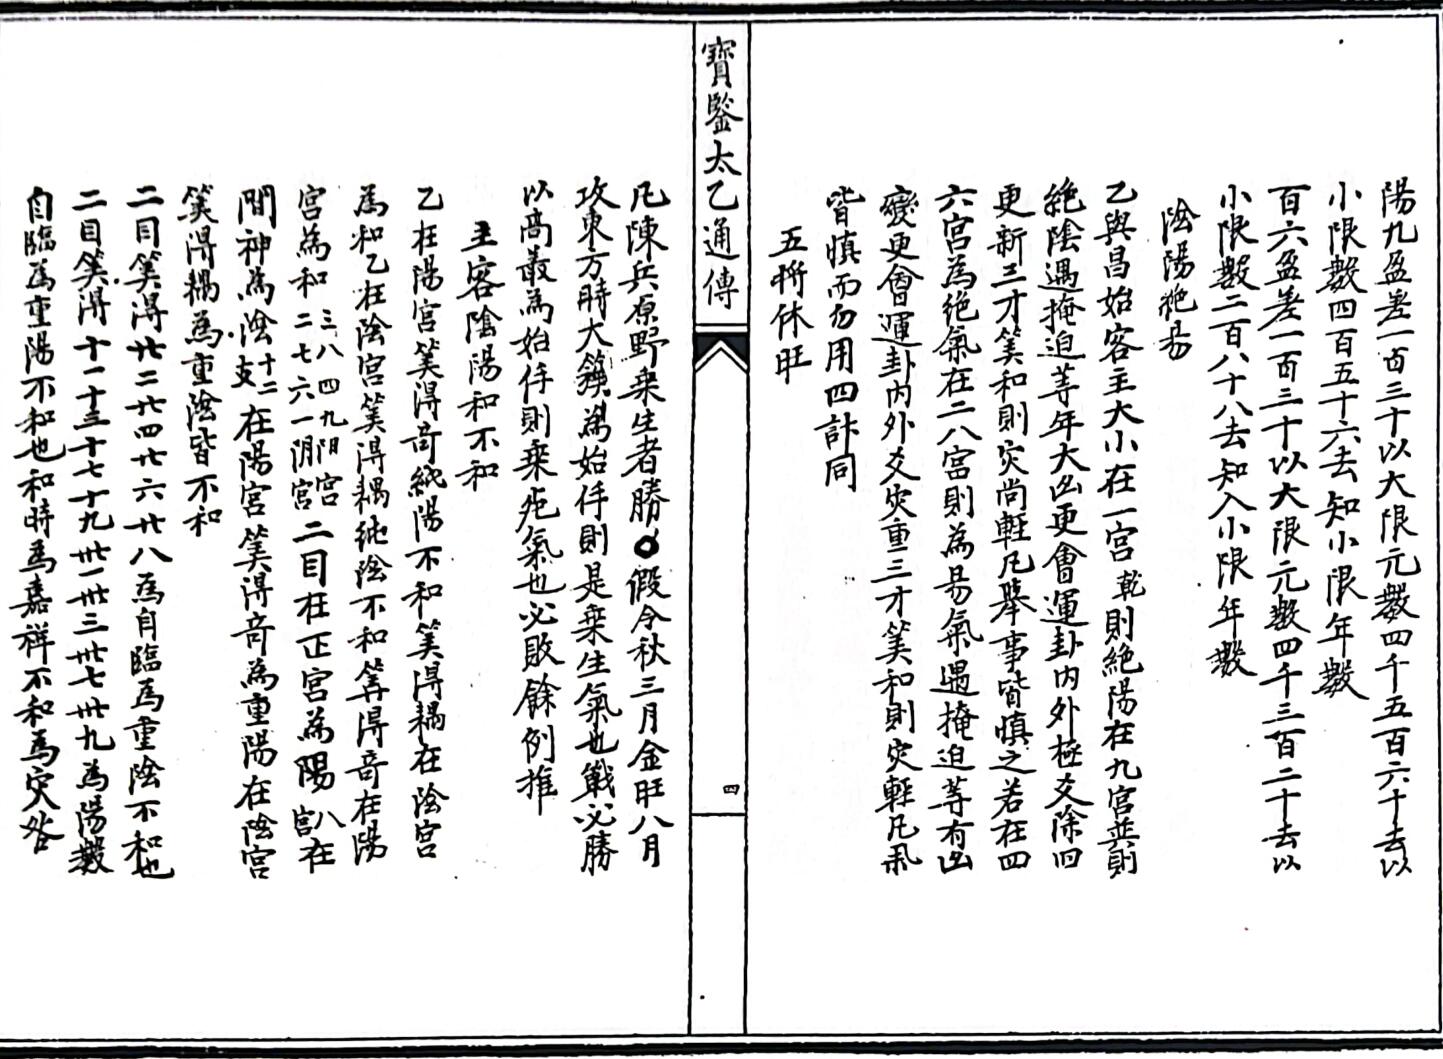 陽九盈差一百三十以大限元數四千五百六十去以
小限數四百五十六去知小限年數
百六盈差一百三十以大限元數四千三百二十去以
小限數二百八十八去知入小限年數
陰陽絶易
乙與昌始客主大小在一宮乾則絶陽在九宮巽則
絶陰遇掩迫等年大凶更會運卦内外極爻除旧
更新三才筭和則灾尚輕凡舉事皆慎之若在四
六宮為絶氣在二八宮則為易氣遇掩迫等有凶
變更會運卦内外爻灾重三才筭和則灾輕凡
皆慎而勿用四計同
五將休旺
寶鑒太乙通傳
四
凡陳兵原野乗生者勝○假令秋三月金旺八月
攻東方時大為始作則是乗生氣也戰必勝
以高叢為始作則乗死氣也必敗餘例推
主客陰陽和不和
乙在陽宮筭得奇純陽不和筭得耦在陰宮
為和乙在陰宮筭得耦純陰不和筭得奇在陽
宮為和三八四九陽宮二七六一陰宮二目在正宮為陽八宮在
間神為陰十二支在陽宮筭得奇為重陽在陰宮
筭得耦為重陰皆不和
二目筭得廿二廿四廿六廿八為自臨為重陰不和也
二目筭得十一十三十七十九卅一卅三卅七卅九為陽數
自臨為重陽不和也和時為嘉祥不和為灾咎